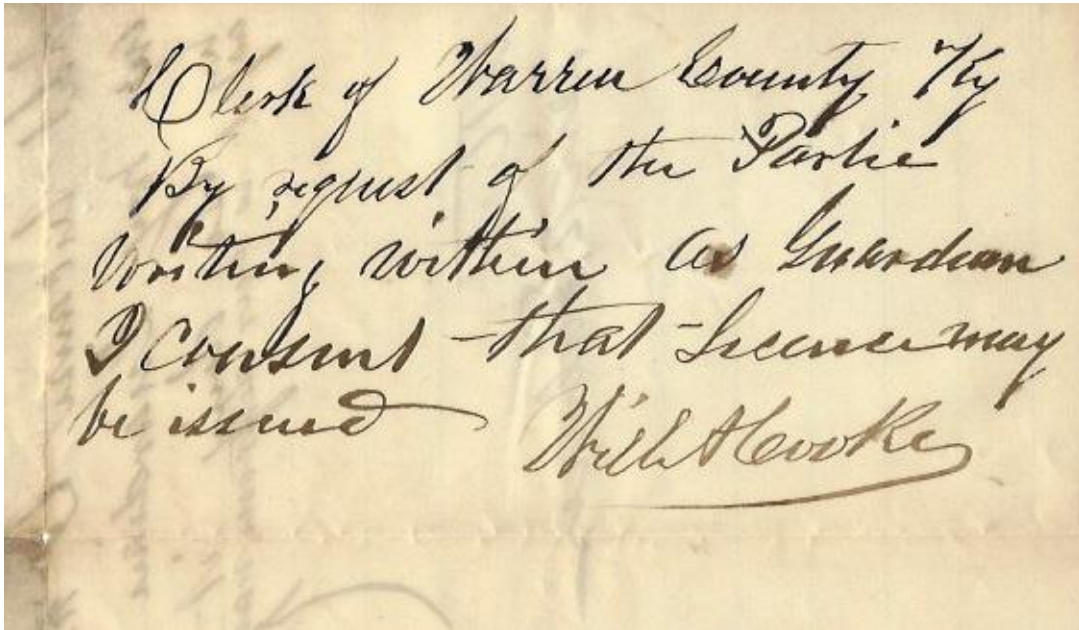 Clerk of Warren County Ky
By request of the Partie
Writing within as Guardian
I consent that Licence may
be issued Will A Cooke